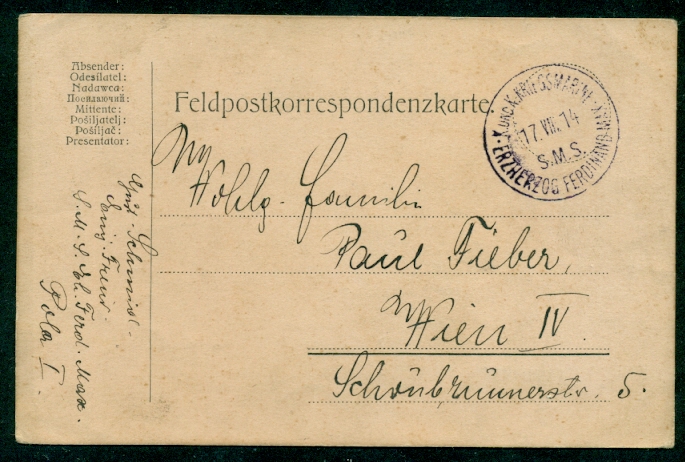 Absender:
Odesílatel:
Nadawca:
Посилаючий:
Mittente:
Pošiljatelj:
Pošiljač:
Presentator:
Feldpostkorrespondenzkarte
K. UND K. KRIEGSMARINE
17. VIII. 14
S.M.S.
ERZHERZOG FERDINAND MAX
Wohlg. Familie
Paul Fieber,
Wien IV.
Schönbrunnerstr. 5.
Schmid
S. M. S. Eh. Ferd. Max.
Pola I.